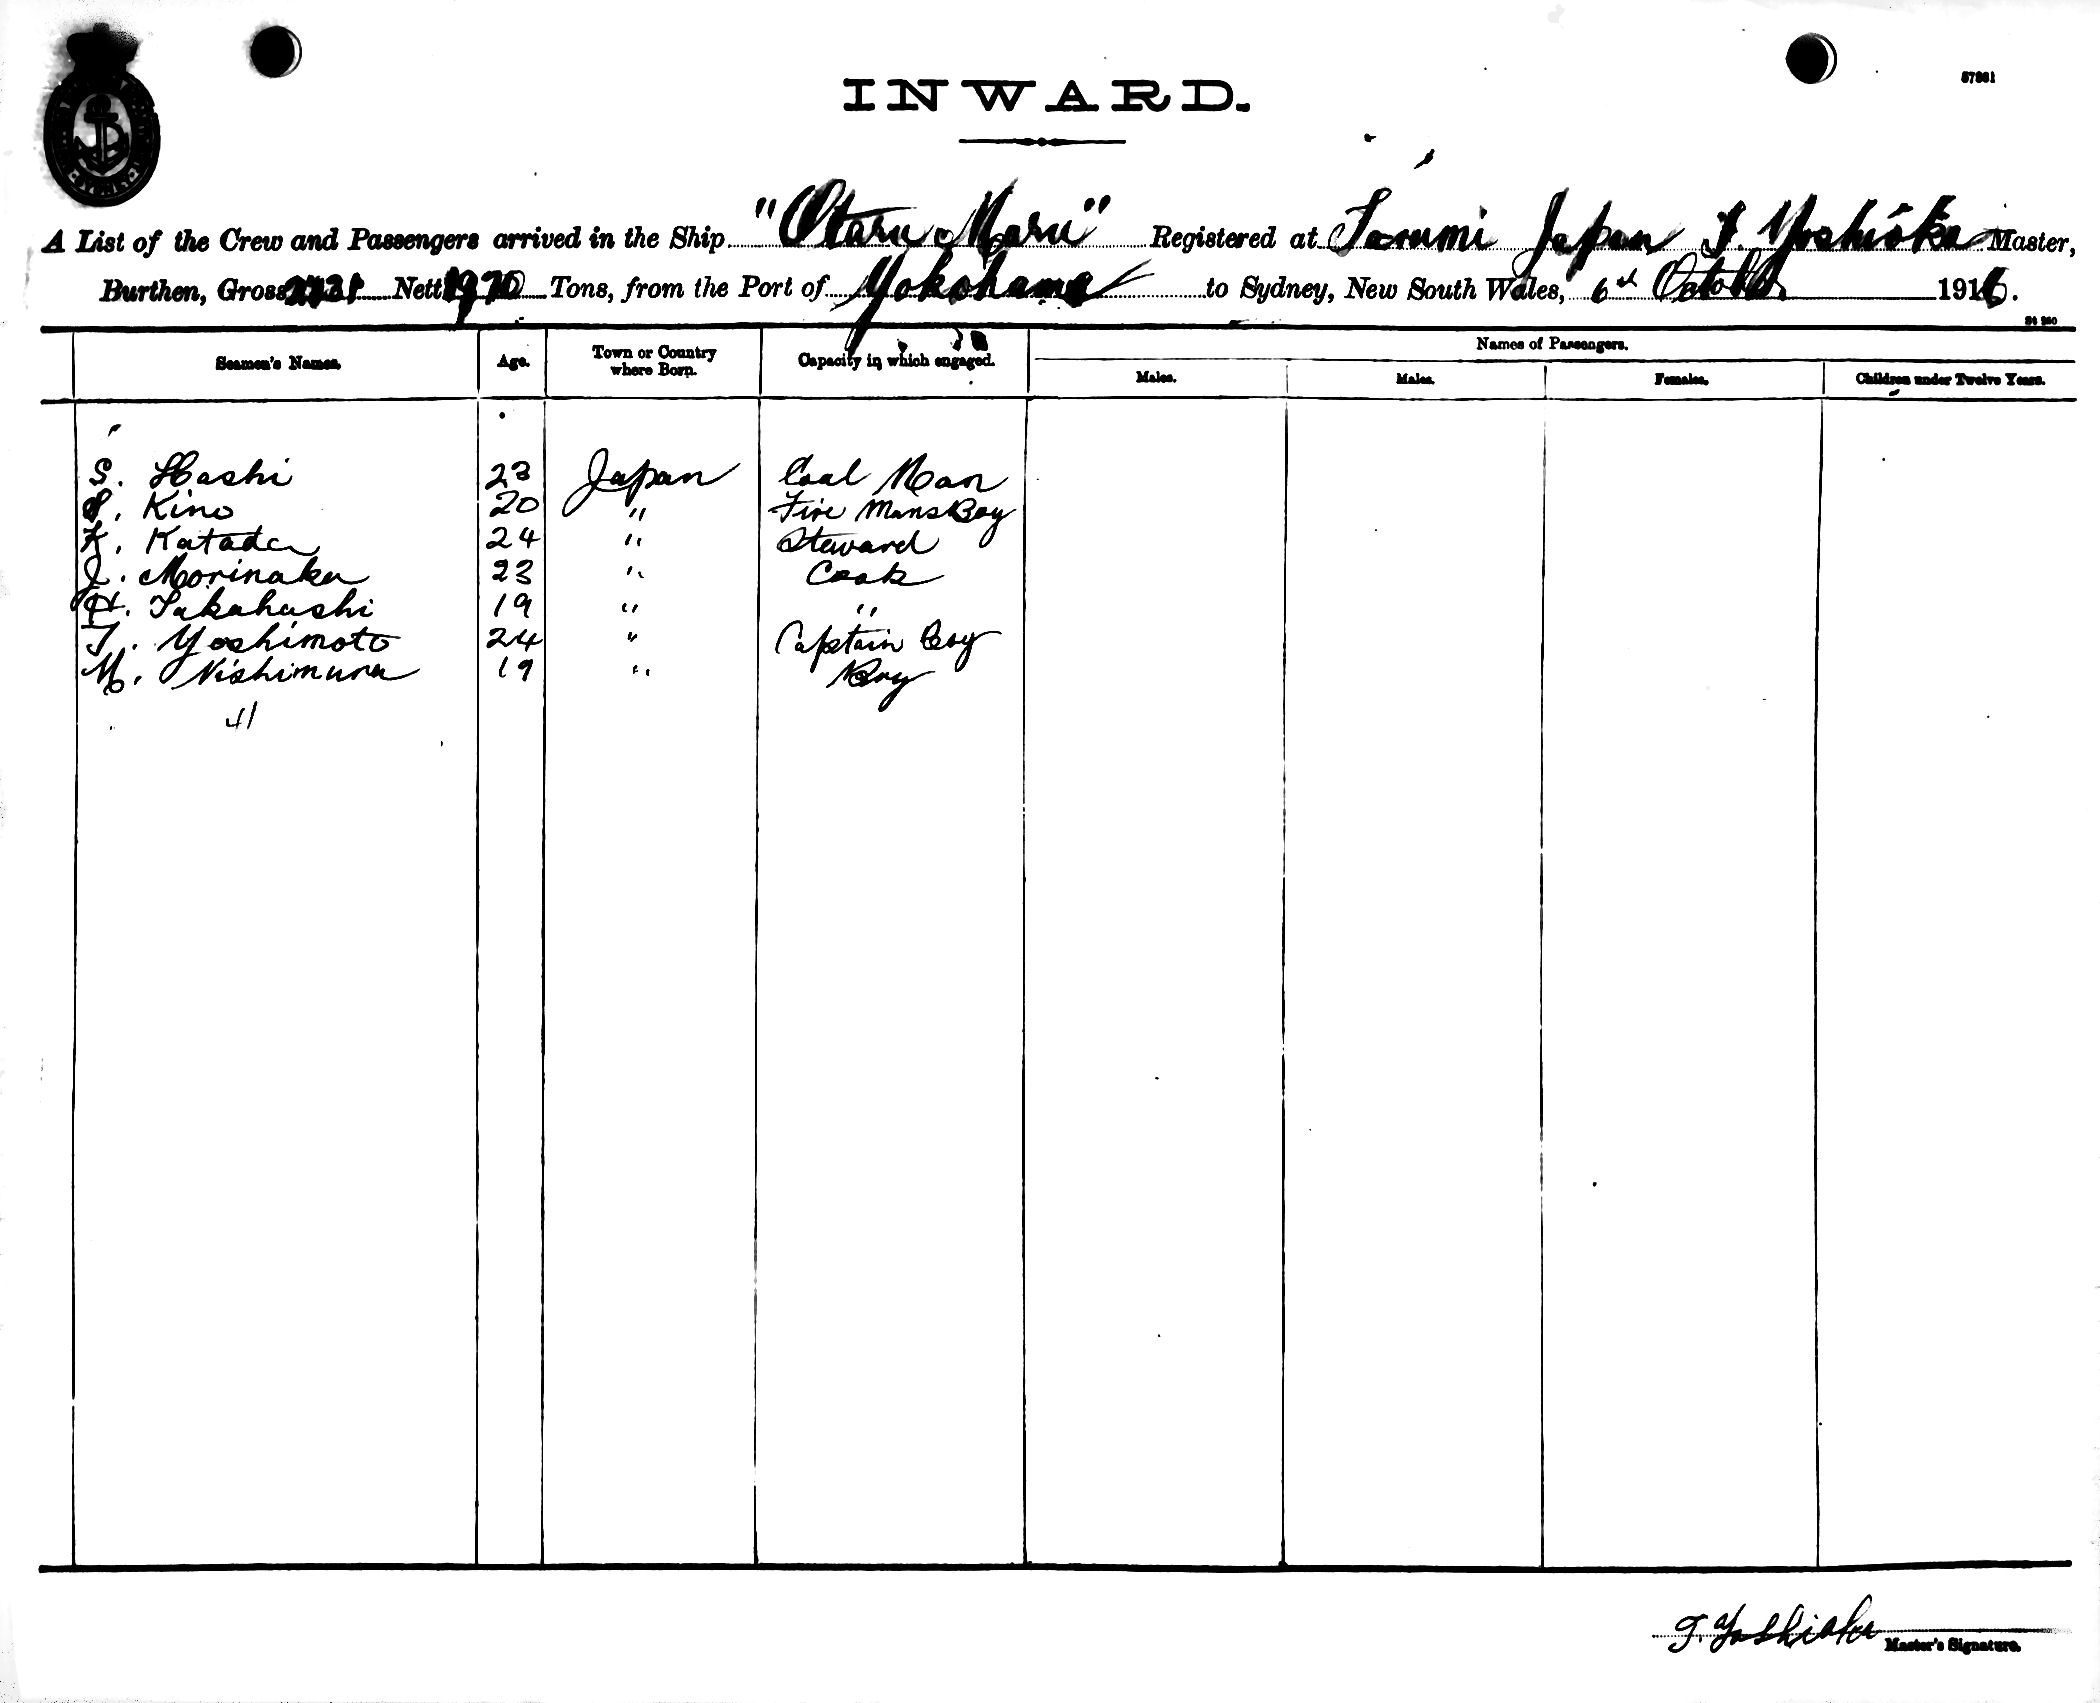 57961
INWARD.
A List of the Crew and Passengers arrived in the Ship "Otaru Maru" Registered at Japan T. Yoshioka Master,
Burthen, Gross Nett 1970 Tons, from the Port of Yokohama to Sydney, New South Wales, 6th October 1916.
Seamen's Names. Age. Town or Country where Born. Capacity in which engaged. Names of Passengers.
Males. Males. Females. Children under Twelve Years.
S. Hashi 23 Japan Coal Man
S. Kino 20 " Fire Mans Boy
K. Katada 24 " Steward
J. Morinaka 23 " Cook
H. Takahashi 19 " "
T. Yoshimoto 24 " Captain Boy
M. Nishimura 19 " Boy
41
T. Yoshioka Master's Signature.